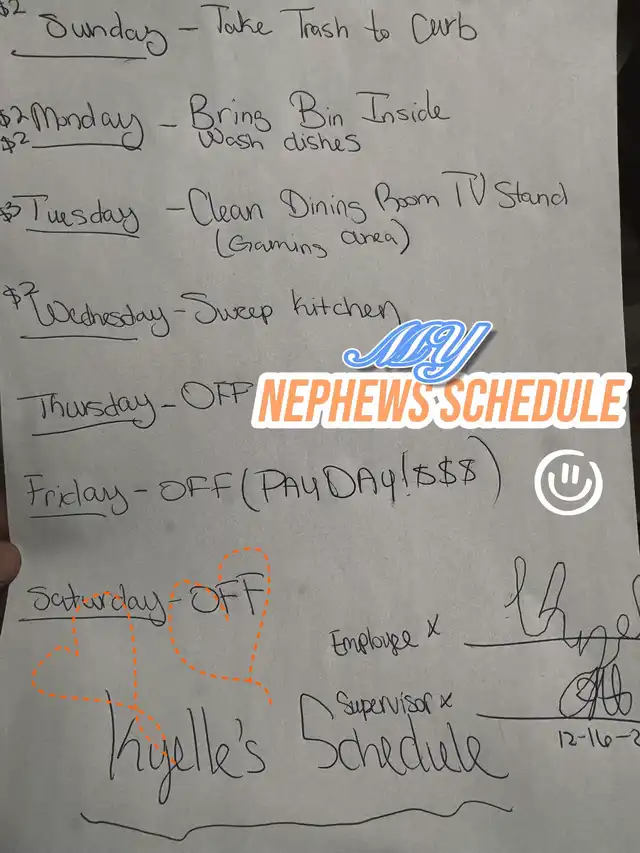 $2 Sunday - Take Trash to Curb
$2 Monday - Bring Bin Inside
$2 Wash dishes
$3 Tuesday - Clean Dining Room TV Stand
(Gaming area)
$2 Wednesday - Sweep Kitchen
MY
NEPHEWS SCHEDULE
Thursday - OFF
Friday - OFF (PAYDAY! $$$)
Saturday - OFF
Employee x
Supervisor x
12-16-2
Kyelle's Schedule